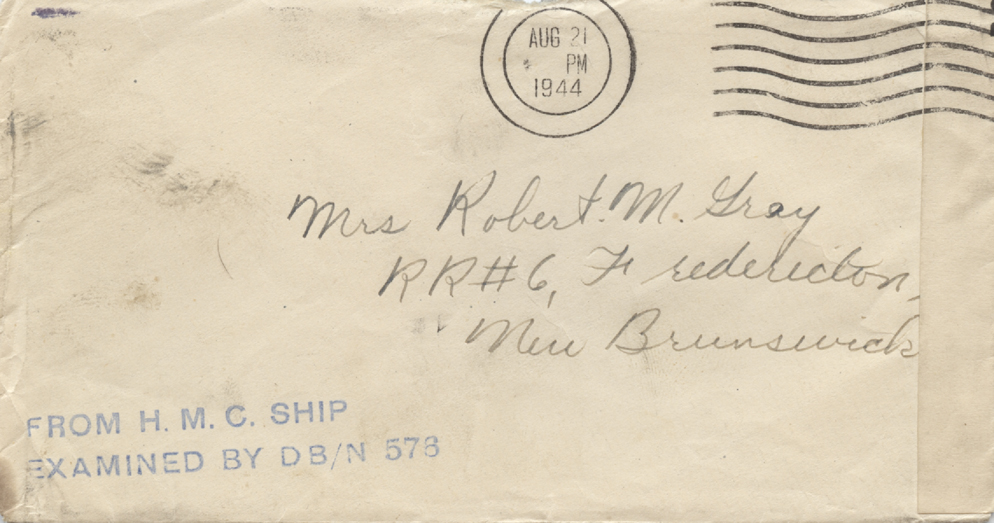 AUG 21
PM
1944
Mrs Robert. M. Gray
RR#6, Fredericton,
New Brunswick
FROM H. M. C. SHIP
EXAMINED BY DB/N 576